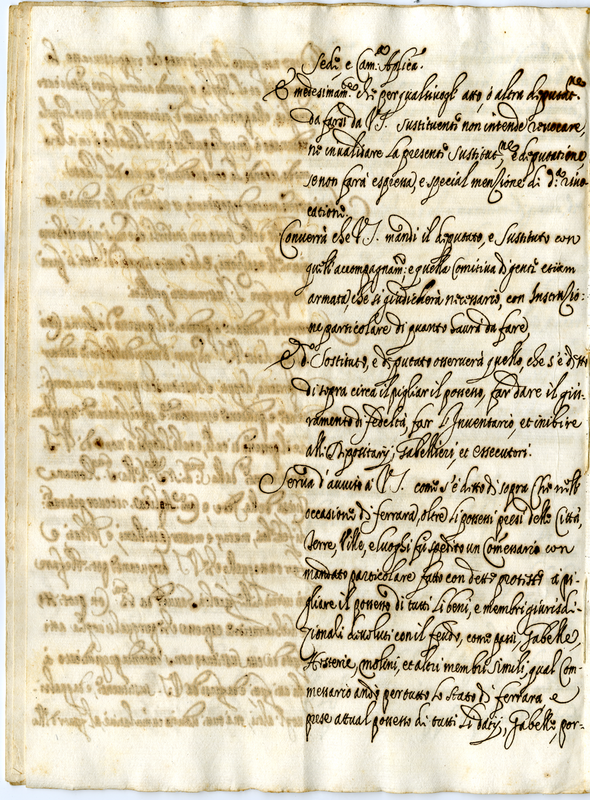 Sedⁱᵃ e Camᵃ Aplicᵃ.
E medesimamᵗᵉ che per qualsivogl' atto, ò altra deputatⁿᵉ
da farsi da V.S. sustituendˢ non intende revocare,
ne invalidare la presente sustitutⁿᵉ, e deputatione
se non farà espressa, e special mensione di dᵃ rivo
catione.
Converrà che V.S. mandi il deputato, e sustituto con
quell'accompagnamᵗᵒ, e quella comitiva di gente etiam
armata, che si giudicherà necessario, con Instruttio:
ne particolare di quanto haurà da fare
E dᵒ Sostituto, e deputato osserverà quello, che s'è dᵗᵗᵒ
di sopra circa il pigliar il possesso, far dare il giu-
ramento di fedeltà, far l'Inventario, et inibire
alli Depositarij, Gabellieri, et essecutori.
Serva d'avviso à V.S. come s'è ditto di sopra che nell'
occasione di ferrara, oltre li possessi presi delle Città,
Terre, Ville, e luoghi fu spedito un Comessario con
mandato particolare fatto con detto protesto a pi-
gliare il possesso di tutti li beni, e membri giurisdi-
zionali devoluti con il feudo, come passi, Gabelle,
Hosterie, molini, et altri membri simili, qual Com-
messario andò per tutto lo stato di ferrara e
prese attual possesso di tutti li datij, Gabelle, por-